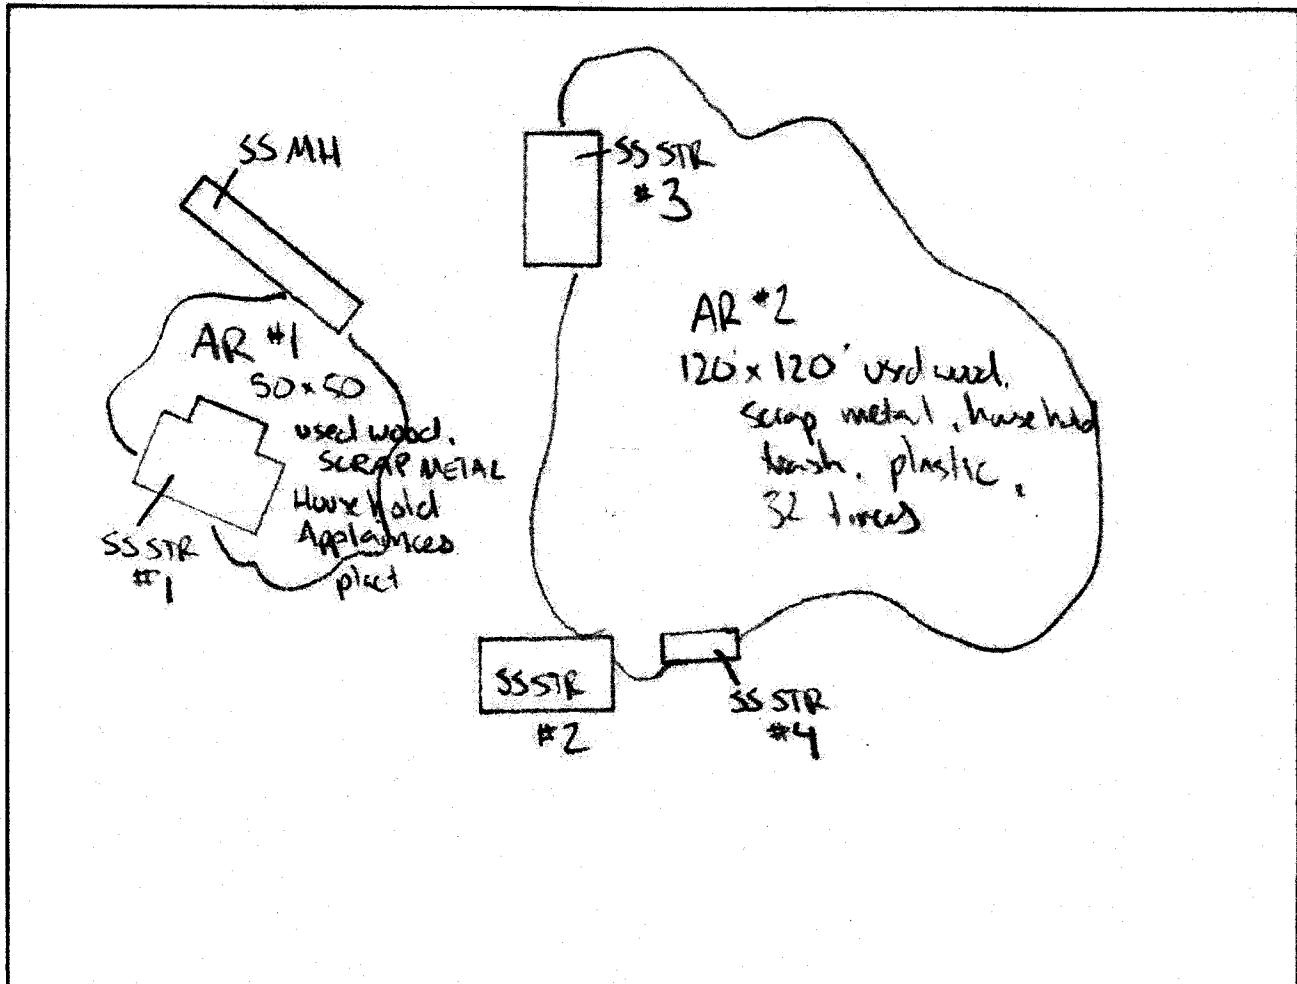 SS MH
AR #1
50 x 50
used wood.
SCRAP METAL
Household
Applainces
plact
SS STR
#1
SS STR
#3
AR #2
120' x 120' used wood.
scrap metal, household
trash, plastic,
32 tires
SS STR
#2
SS STR
#4